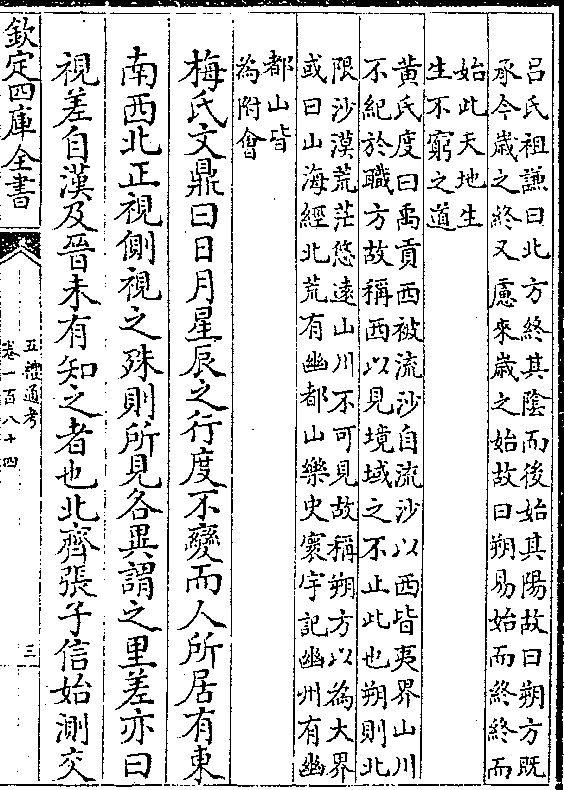 呂氏祖謙曰北方終其陰而後始其陽故曰朔方既
承今歲之終又慮來歲之始故曰朔易始而終終而
始此天地生
生不窮之道
黄氏度曰禹貢西被流沙自流沙以西皆夷界山川
不紀於職方故稱西以見境域之不止此也朔則北
限沙漠荒茫悠遠山川不可見故稱朔方以為大界
或曰山海經北荒有幽都山樂史寰宇記幽州有幽
都山皆
為附會
梅氏文鼎曰日月星辰之行度不變而人所居有東
南西北正視側視之殊則所見各異謂之里差亦曰
視差自漢及晉未有知之者也北齊張子信始測交
欽定四庫全書
五禮通考
卷一百八十四
三